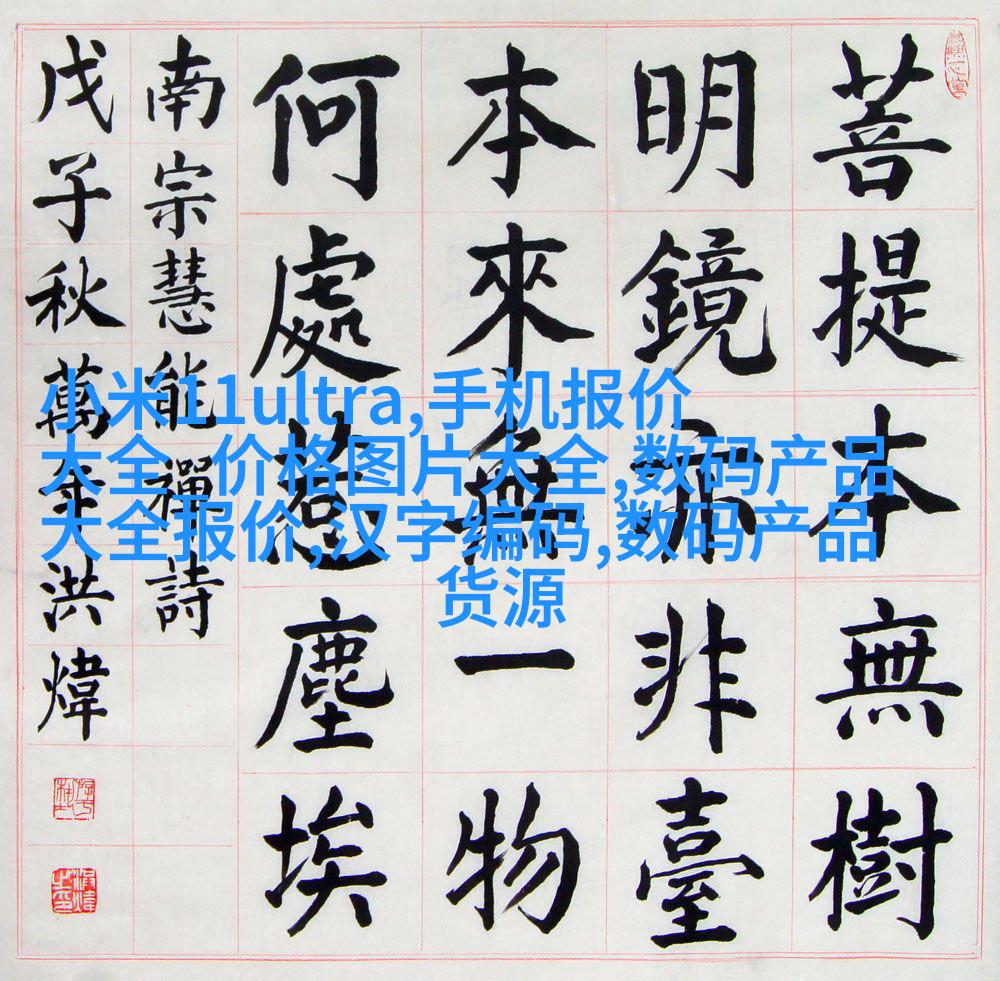 菩提本無樹
明鏡亦非臺
本來無一物
何處惹塵埃
南宗慧能禪詩
戊子秋萬洪煒
小米11ultra,手机报价
大全 价格图片大全,数码产品
大全报价,汉字编码,数码产品
货源